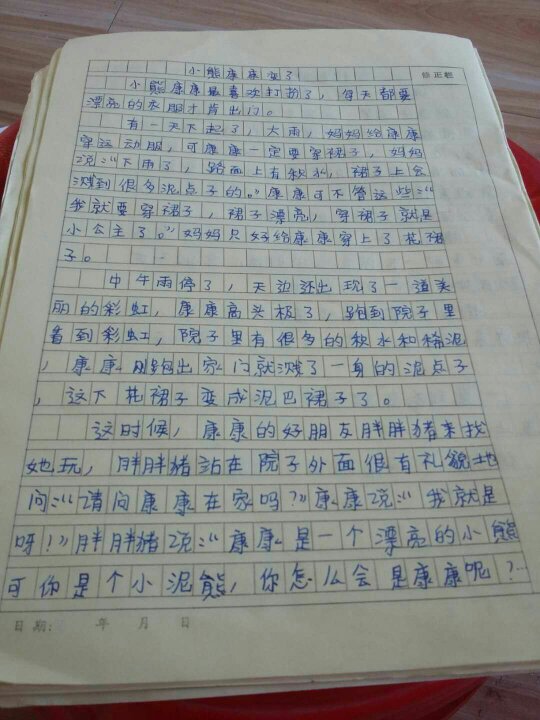 小熊康康变了
修正栏
小熊康康最喜欢打扮了，每天都要
漂亮的衣服才肯出门。
有一天下起了，大雨，妈妈给康康
穿运动服，可康康一定要穿裙子，妈妈
说：“下雨了，路面上有秋水，裙子上会
溅到很多泥点子的。”康康可不管这些：“
我就要穿裙子，裙子漂亮，穿裙子就是
小公主了。”妈妈只好给康康穿上了花裙
子。
中午雨停了，天边还出现了一道美
丽的彩虹，康康高头极了，跑到院子里
看到彩虹，院子里有很多的秋水和稀泥
，康康刚跑出家门就溅了一身的泥点子
，这下花裙子变成泥巴裙子了。
这时候，康康的好朋友胖胖猪来找
她玩，胖胖猪站在院子外面很有礼貌地
问：“请问康康在家吗？”康康说：“我就是
呀！”胖胖猪说：“康康是一个漂亮的小熊
可你是个小泥熊，你怎么会是康康呢？…
日期： 年 月 日